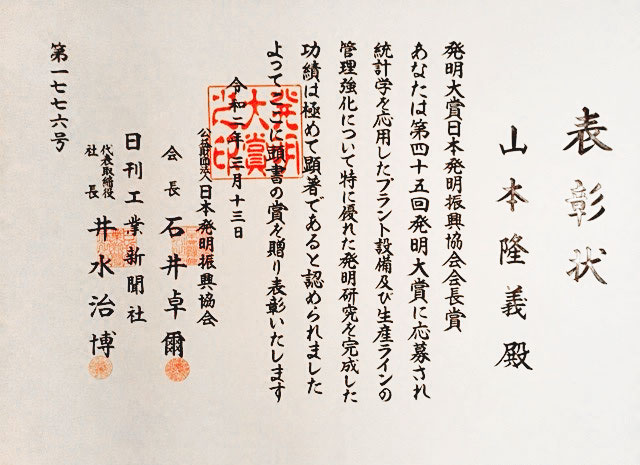 表彰状
山本隆義殿
発明大賞日本発明振興協会会長賞
あなたは第四十五回発明大賞に応募され
統計学を応用したプラント設備及び生産ラインの
管理強化について特に優れた発明研究を完成した
功績は極めて顕著であると認められました
よってここに頭書の賞を贈り表彰いたします
令和二年三月十三日
発明大賞之印
公益財団法人日本発明振興協会
会長 石井卓爾
日刊工業新聞社
代表取締役社長 井水治博
第一七七六号